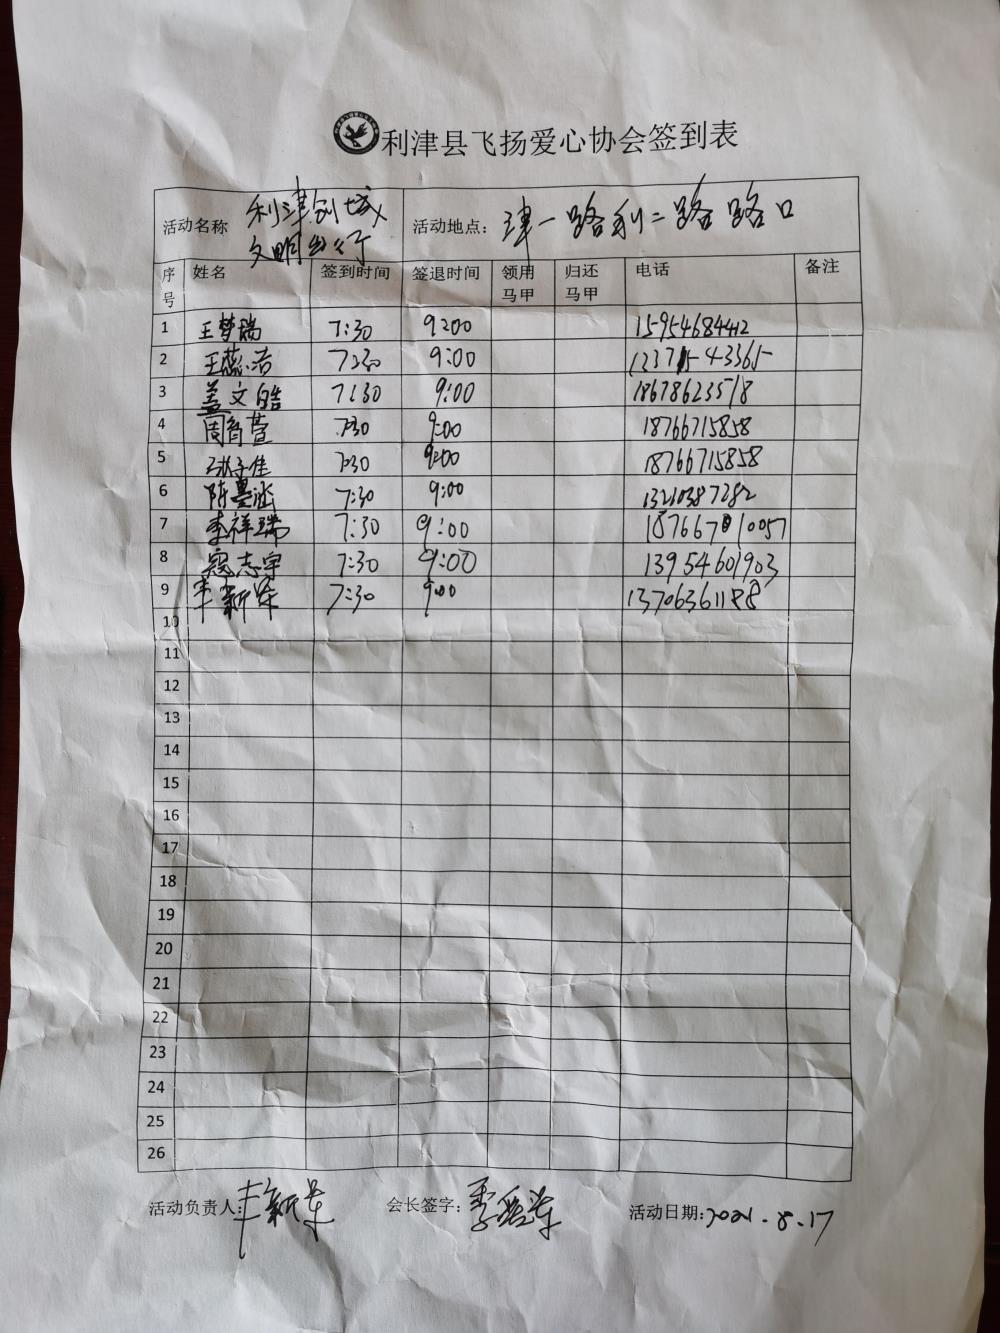 利津县飞扬爱心协会签到表
活动名称 利津创城 文明出行 活动地点: 津一路利二路路口
序号 姓名 签到时间 签退时间 领用马甲 归还马甲 电话 备注
1 王梦瑞 7:30 9:00 15954684412
2 王蕊洁 7:30 9:00 13371543365
3 盖文皓 7:30 9:00 18678623518
4 周智萱 7:30 9:00 18766715858
5 张子佳 7:30 9:00 18766715858
6 陈墨涵 7:30 9:00 13210387282
7 李祥瑞 7:30 9:00
8 寇志宇 7:30 9:00 13954601903
9 7:30 9:00 13706361188
10
11
12
13
14
15
16
17
18
19
20
21
22
23
24
25
26
活动负责人: 会长签字: 活动日期: 2021.8.17